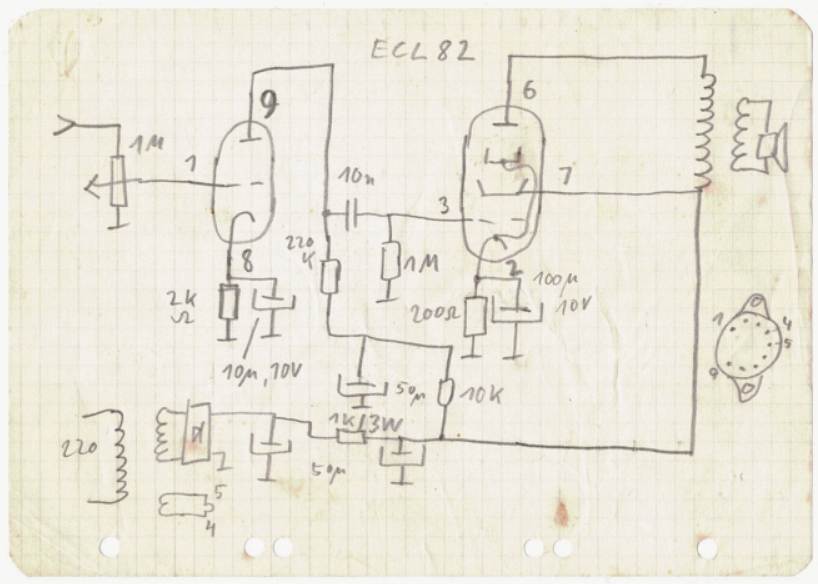 ECL 82
9
6
1M
1
10n
7
3
220
K
8
1M
2
100µ
10V
2K
Ω
200Ω
10µ, 10V
1
4
5
9
50µ
10K
1K/3W
220
50µ
5
4